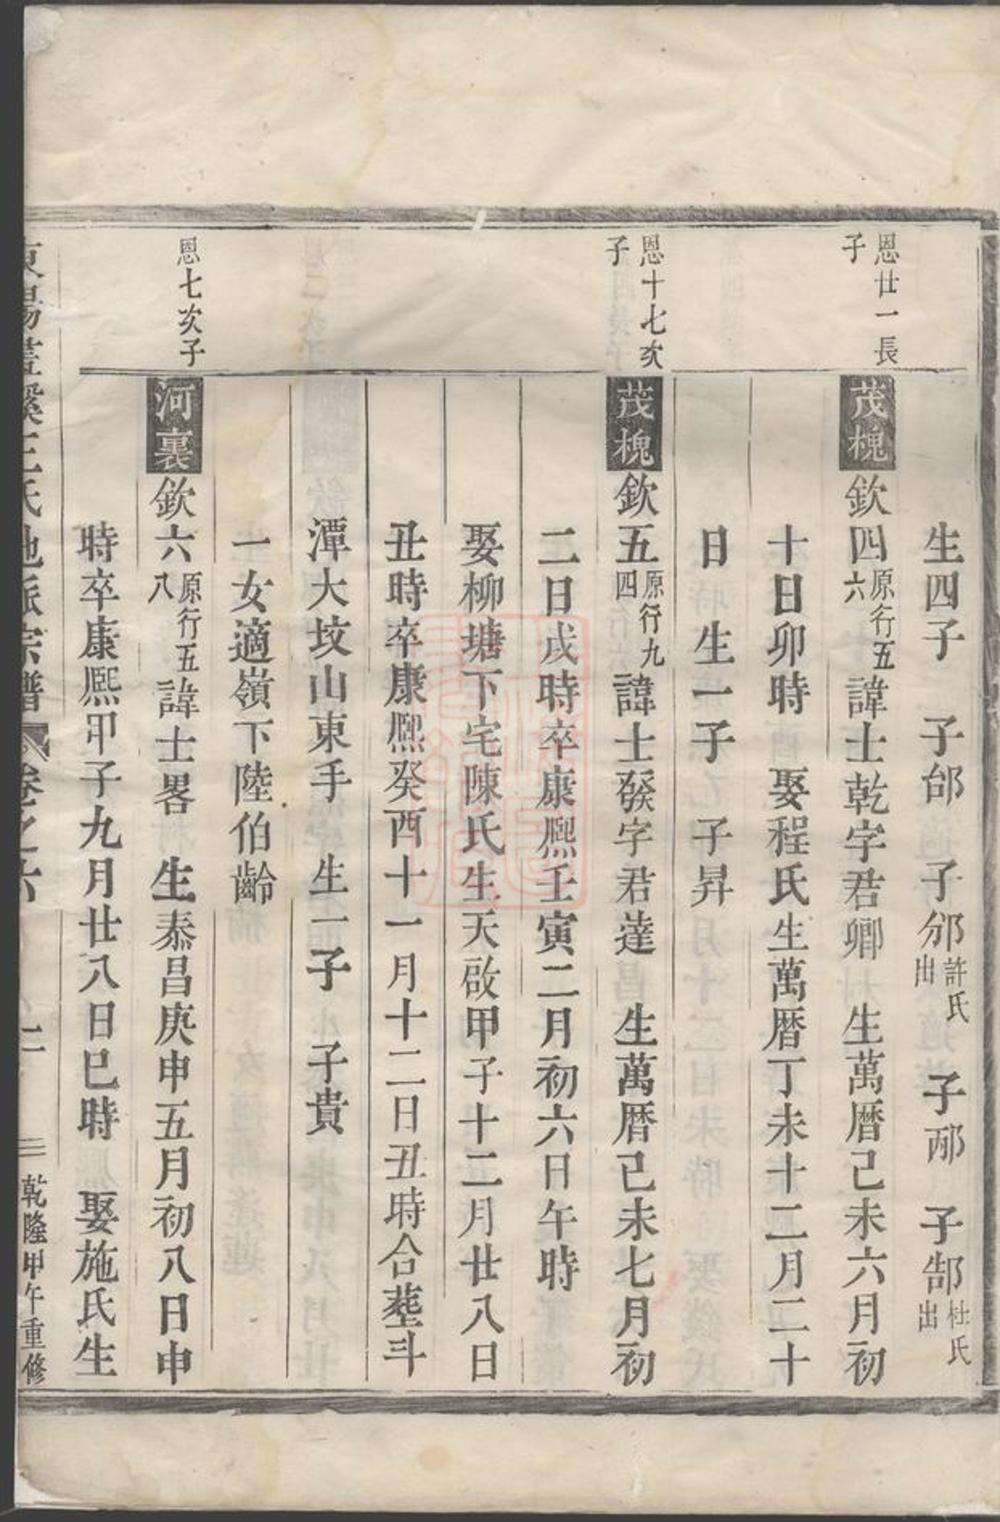 生四子　子邰　子邠許氏出　子邴　子郜杜氏出
恩廿一長子
茂槐欽四原行五六諱士乾字君卿　生萬曆己未六月初
十日卯時　娶程氏生萬曆丁未十二月二十
日　生一子　子昇
恩十七次子
茂槐欽五原行九四諱士發字君達　生萬曆己未七月初
二日戌時卒康熙壬寅二月初六日午時
娶柳塘下宅陳氏生天啟甲子十二月廿八日
丑時卒康熙癸酉十一月十二日丑時合塟斗
潭大坟山東手　生一子　子貴
一女適嶺下陸伯齡
恩七次子
河裏欽六原行五八諱士畧　生泰昌庚申五月初八日申
時卒康熙甲子九月廿八日巳時　娶施氏生
王氏地派宗譜　卷之六　二　乾隆甲午重修